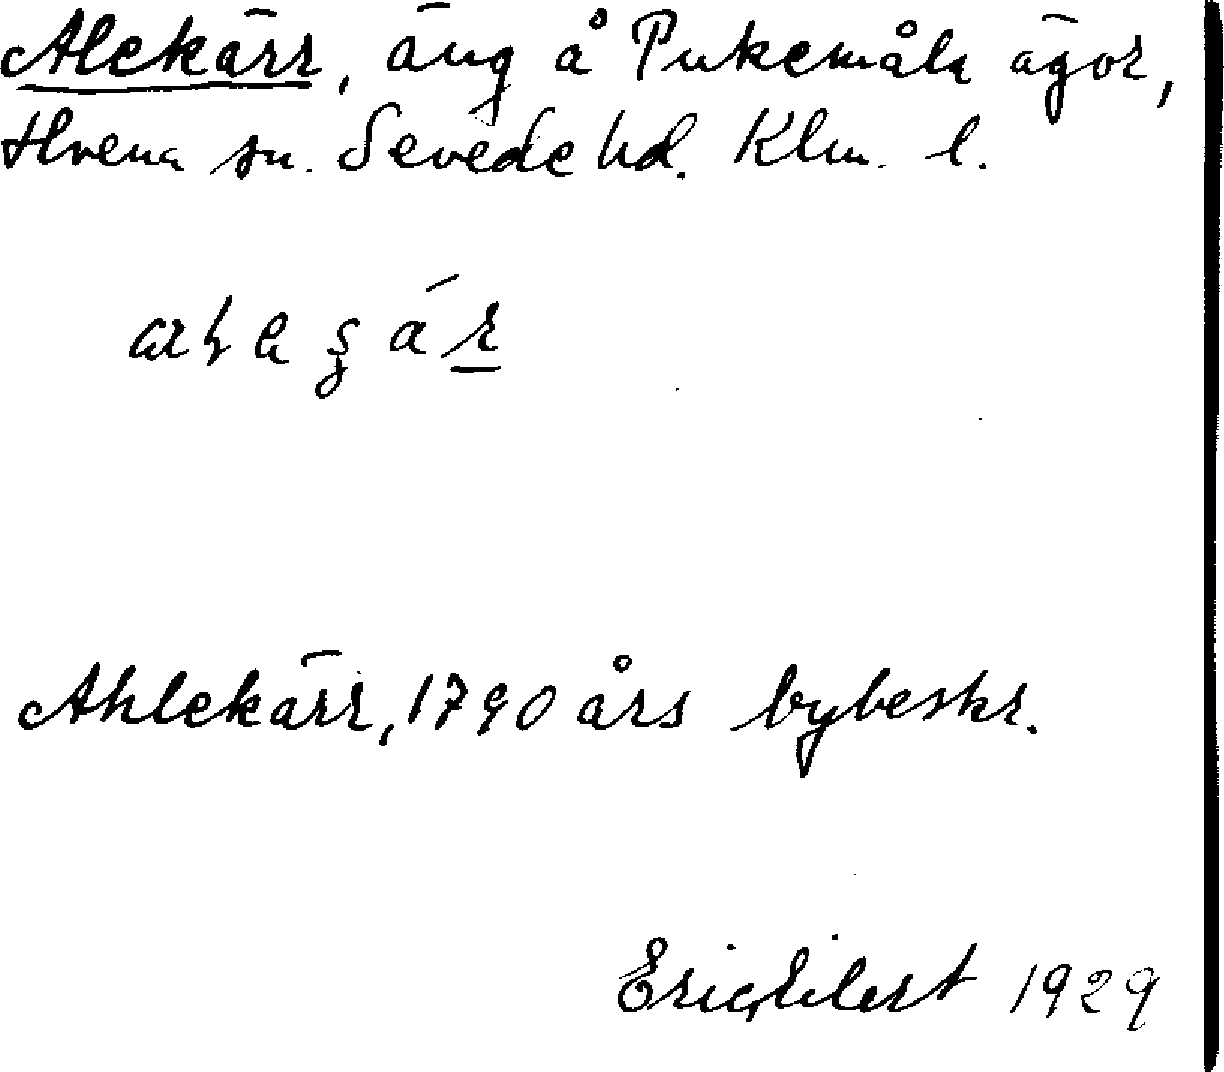 Alekärr, äng å Pukemåla ägor,
Hvena sn. Sevede hd. Klm. l.
Ahlekärr, 1790 års bybeskr.
Eric Eilert 1929